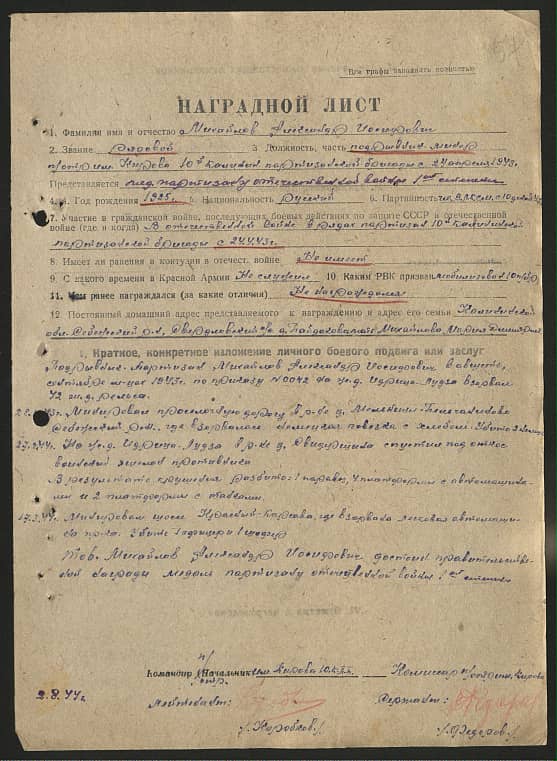 Все графы заполнять полностью
НАГРАДНОЙ ЛИСТ
1. Фамилия имя и отчество Михайлов Александр Иосифович
2. Звание рядовой 3 Должность, часть подрывник минер
п/отр им. Кирова 10й Калинин. партизанской бригады с 24 апреля 1943г.
Представляется мед. партизану отечественной войны 1ой степени
4. Год рождения 1925г. 5. Национальность Русский 6. Партийность
7. Участие в гражданской войне, последующих боевых действиях по защите СССР и отечественной
войне (где и когда) В отечественной войне в рядах партизан 10й Калининской
партизанской бригады с 24.4.43г.
8. Имеет ли ранения и контузии в отечест. войне Не имеет
9. С какого времени в Красной Армии Не служил 10. Каким РВК призван
11. Чем ранее награждался (за какие отличия) Не награждался
12. Постоянный домашний адрес представляемого к награждению и адрес его семьи Калининская
обл. Себежский р-н, Свердловский с/с д. Михайлова Мария
I. Краткое, конкретное изложение личного боевого подвига или заслуг
Подрывник-партизан Михайлов Александр Иосифович в августе,
сентябре м-цах 1943г. по приказу №0042 на ж.д. Идрица-Лудза взорвал
42 ж.д. рельса.
Минировал проселочную дорогу в р-не д.
Себежский р-н. где взорвалась немецкая повозка с хлебом. Убито 2 немца
На ж.д. Идрица-Лудза в р-не д. Свидрицка спустил под откос
воинский эшелон противника
В результате крушения разбито: 1 паровоз, 4 платформы с автомашина-
ми и 2 платформы с танками.
Минировал шоссе где взорвана легковая автомашина
пр-ка. Убито 1 офицер и 1 шофер
Тов. Михайлов Александр Иосифович достоин правительствен-
ной награды медаль партизану отечественной войны 1ой степени
Командир (Начальник) им. Кирова 10.К.П.б. Комиссар п/отр им. Кирова
2.8.44г. лейтенант: Сержант:
/Коробков/ /Федоров/